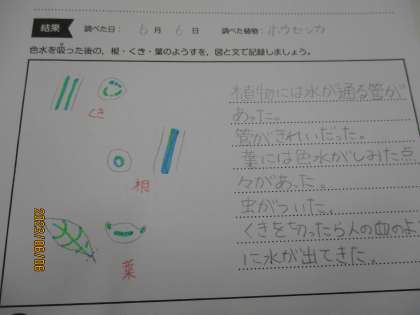 結果 調べた日： 6 月 6 日 調べた植物：ホウセンカ
色水を吸った後の，根・くき・葉のようすを，図と文で記録しましょう。
くき
根
葉
植物には水が通る管が
あった。
管がきれいだった。
葉には色水がしみた点
々があった。
虫がついた。
くきを切ったら人の血のよ
に水が出てきた。
2023/06/06